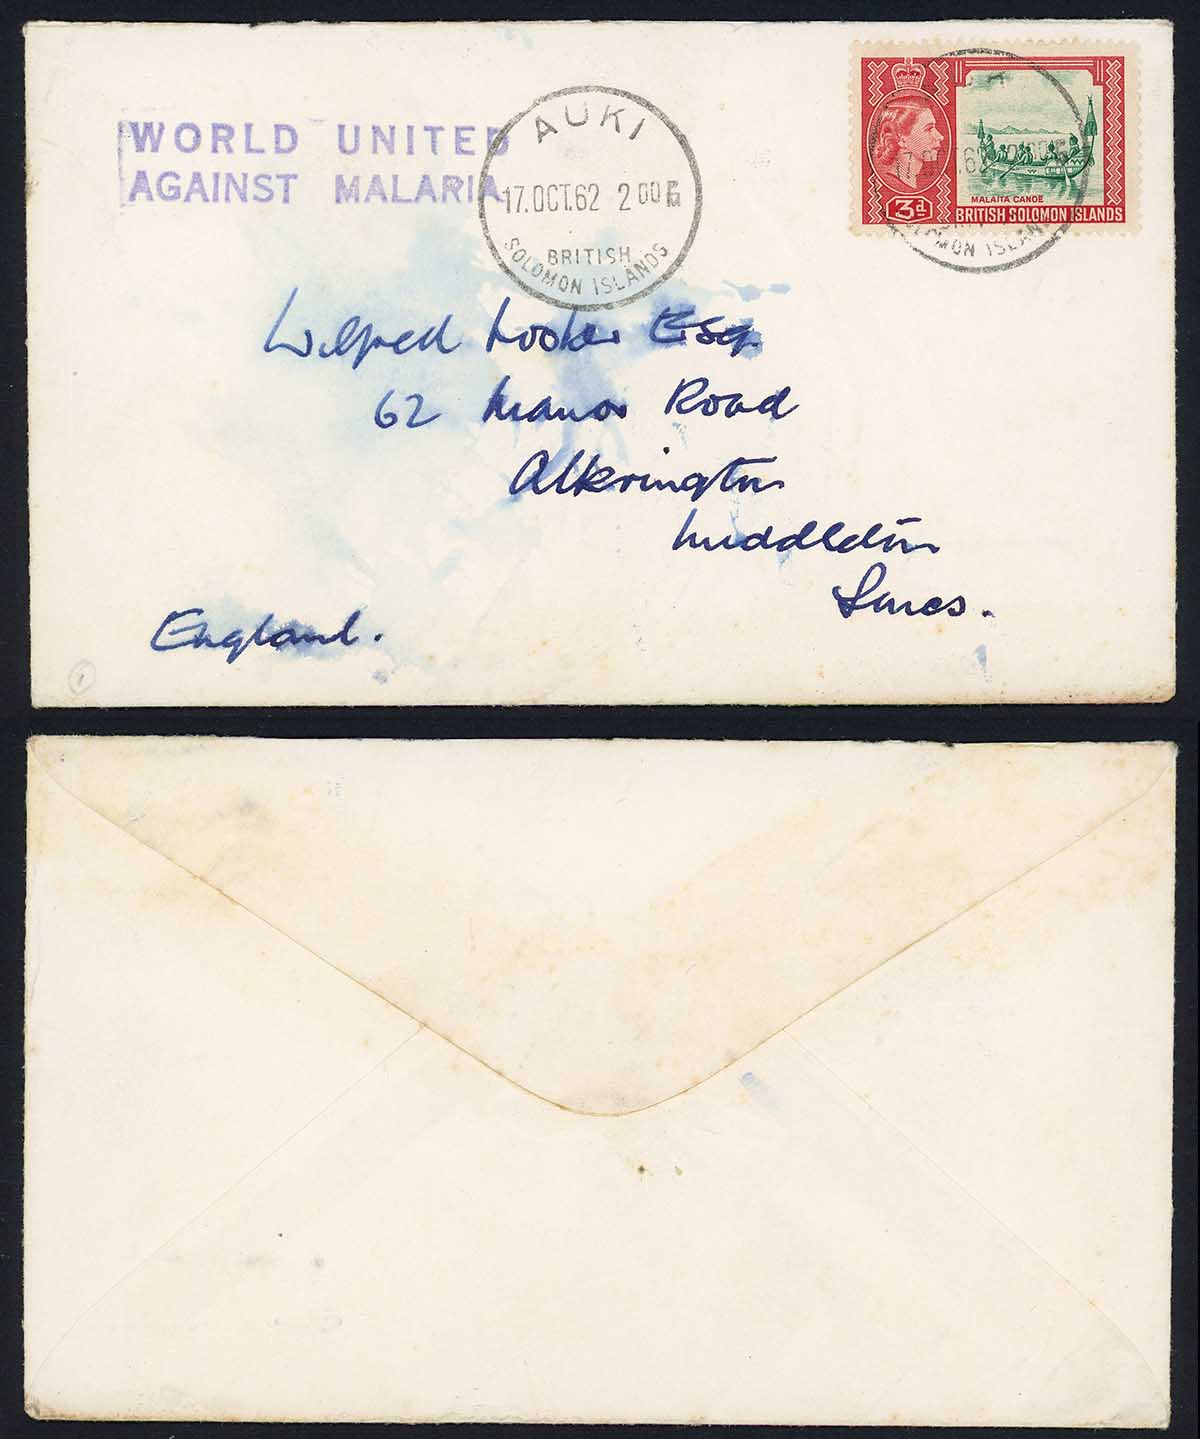 WORLD UNITED
AGAINST MALARIA
AUKI
17.OCT.62 2 00 PM
BRITISH
SOLOMON ISLANDS
3d
MALAITA CANOE
BRITISH SOLOMON ISLANDS
SOLOMON ISLAN
Wilfred Esq.
62 Manor Road
Alkrington
Middleton
Lancs.
England.